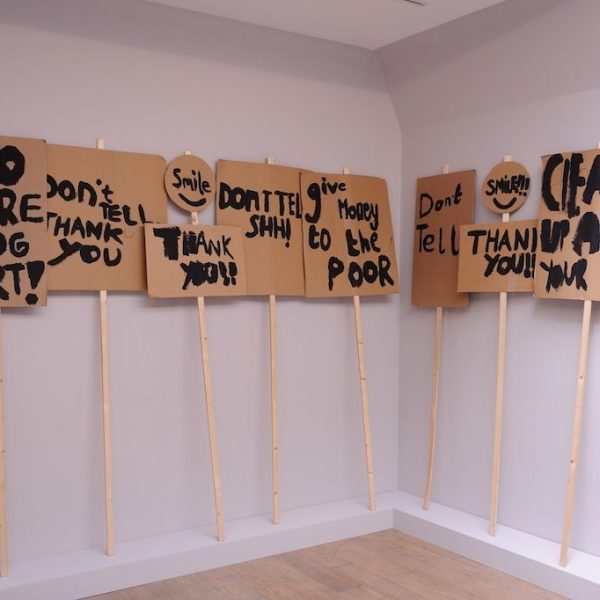 O
RE
OG
RT!
Don't
TELL
THANK
YOU
Smile
THANK
YOU!!
DON'T TELL
SHH!
give
Money
to the
POOR
Don't
Tell
SMILE!!!
THANK
YOU!!
CLEA
UP A
YOUR